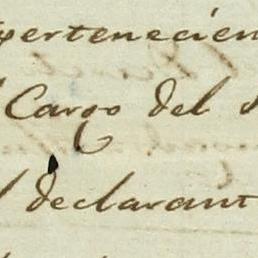 pertenecien
Cargo del
declarant